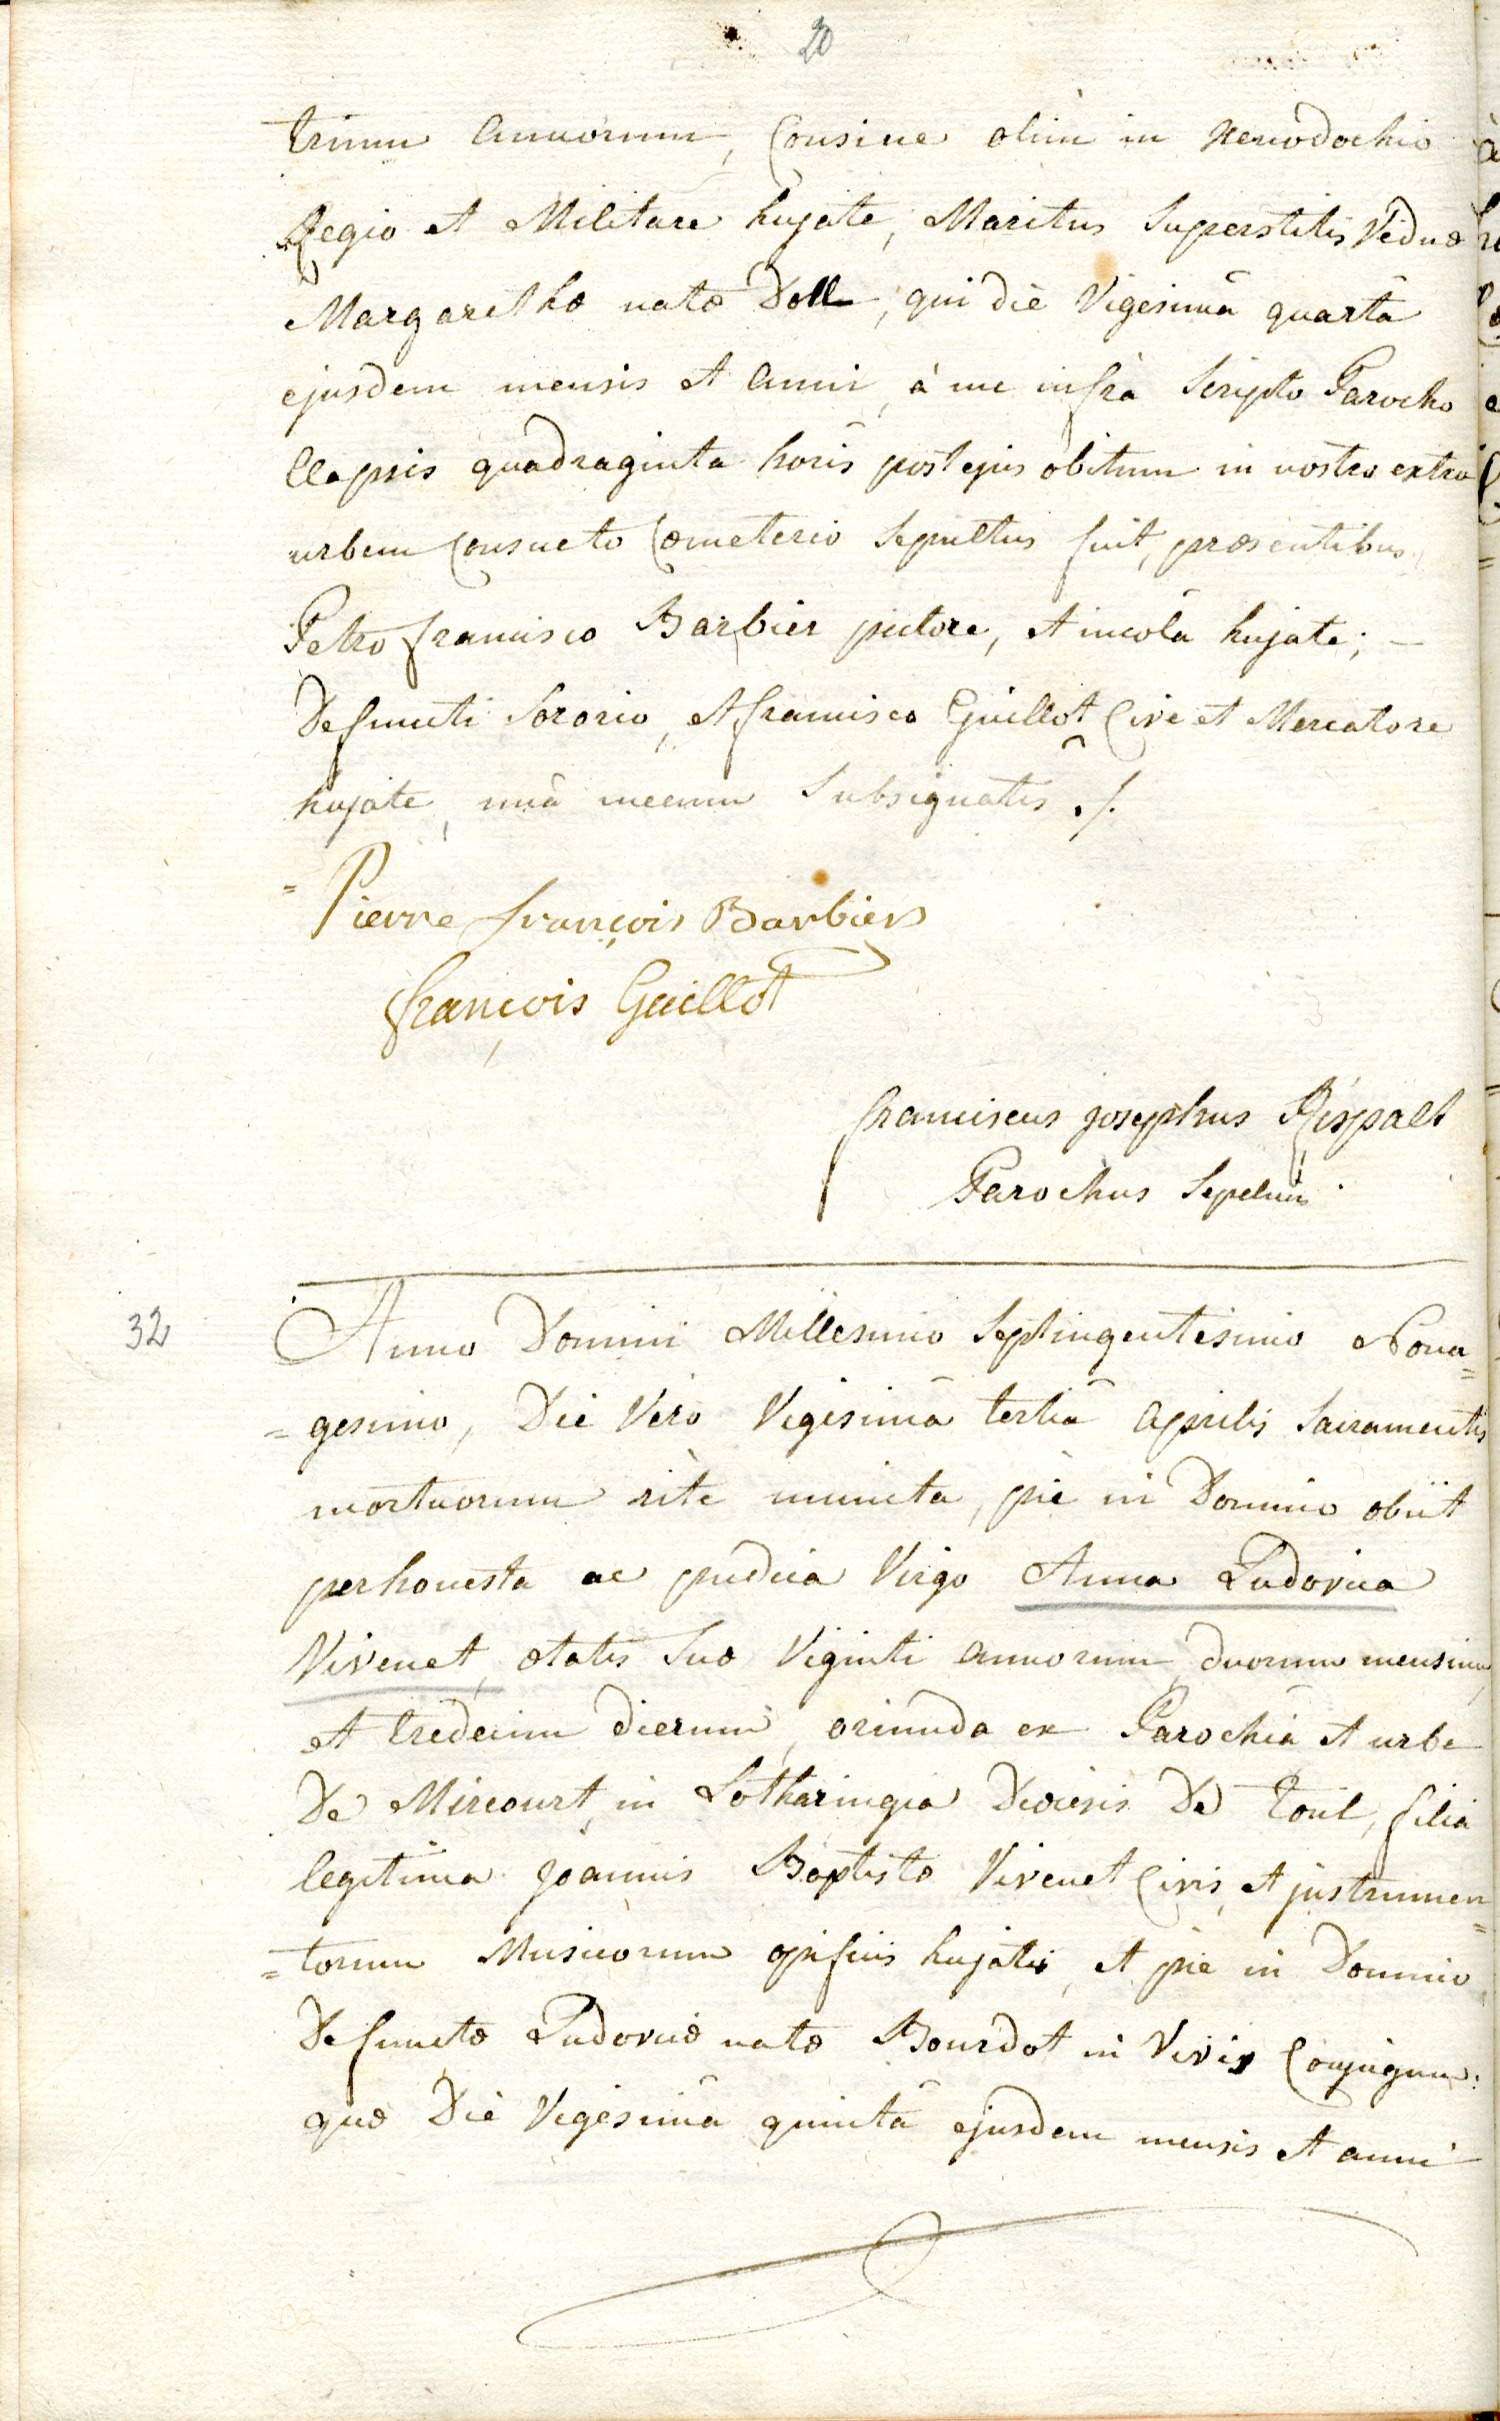 20
trium annorum, Consiue olim in Xenodochio
Regio et Militare hujate, Maritus Superstitis Viduæ
Margarethæ natæ Doll, qui diè Vigesimâ quartâ
ejusdem mensis et anni, à me infrà Scripto Parocho
Elapsis quadraginta horis post ejus obitum in nostro extra
urbem Consueto Cœmeterio Sepultus fuit, præsentibus
Petro francisco Barbier pictore, et incolâ hujate; –
Defuncti Sororio, et francisco Guillot Cive et Mercatore
hujate, unà mecum Subsignatis ./.
= Pierre françois Barbier
françois Guillot
franciscus josephus Rispalt
Parochus Sepelivi.
32
Anno Domini Millesimo Septingentesimo Nona=
=gesimo, Diè Verò Vigesimâ tertiâ aprilis Sacramentis
mortuorum ritè munita, piè in Domino obiit
perhonesta ac pudica Virgo Anna Ludovica
Vivenet, ætatis Suæ Viginti annorum duorum mensium,
et tredecim dierum, oriunda ex Parochiâ et urbe
De Mirecourt, in Lotharingia Diœcesis De Toul, filia
legitima joannis Baptistæ Vivenet Civis, et justrumen=
=torum Musicorum opificis hujatis, et piè in Domino
Defunctæ Ludovicæ natæ Bourdot in Vivis Conjugum:
quæ Diè Vigesimâ quintâ ejusdem mensis et anni